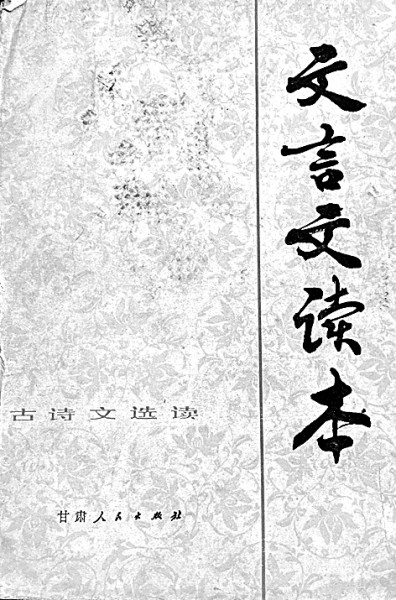 文言文读本
古诗文选读
甘肃人民出版社